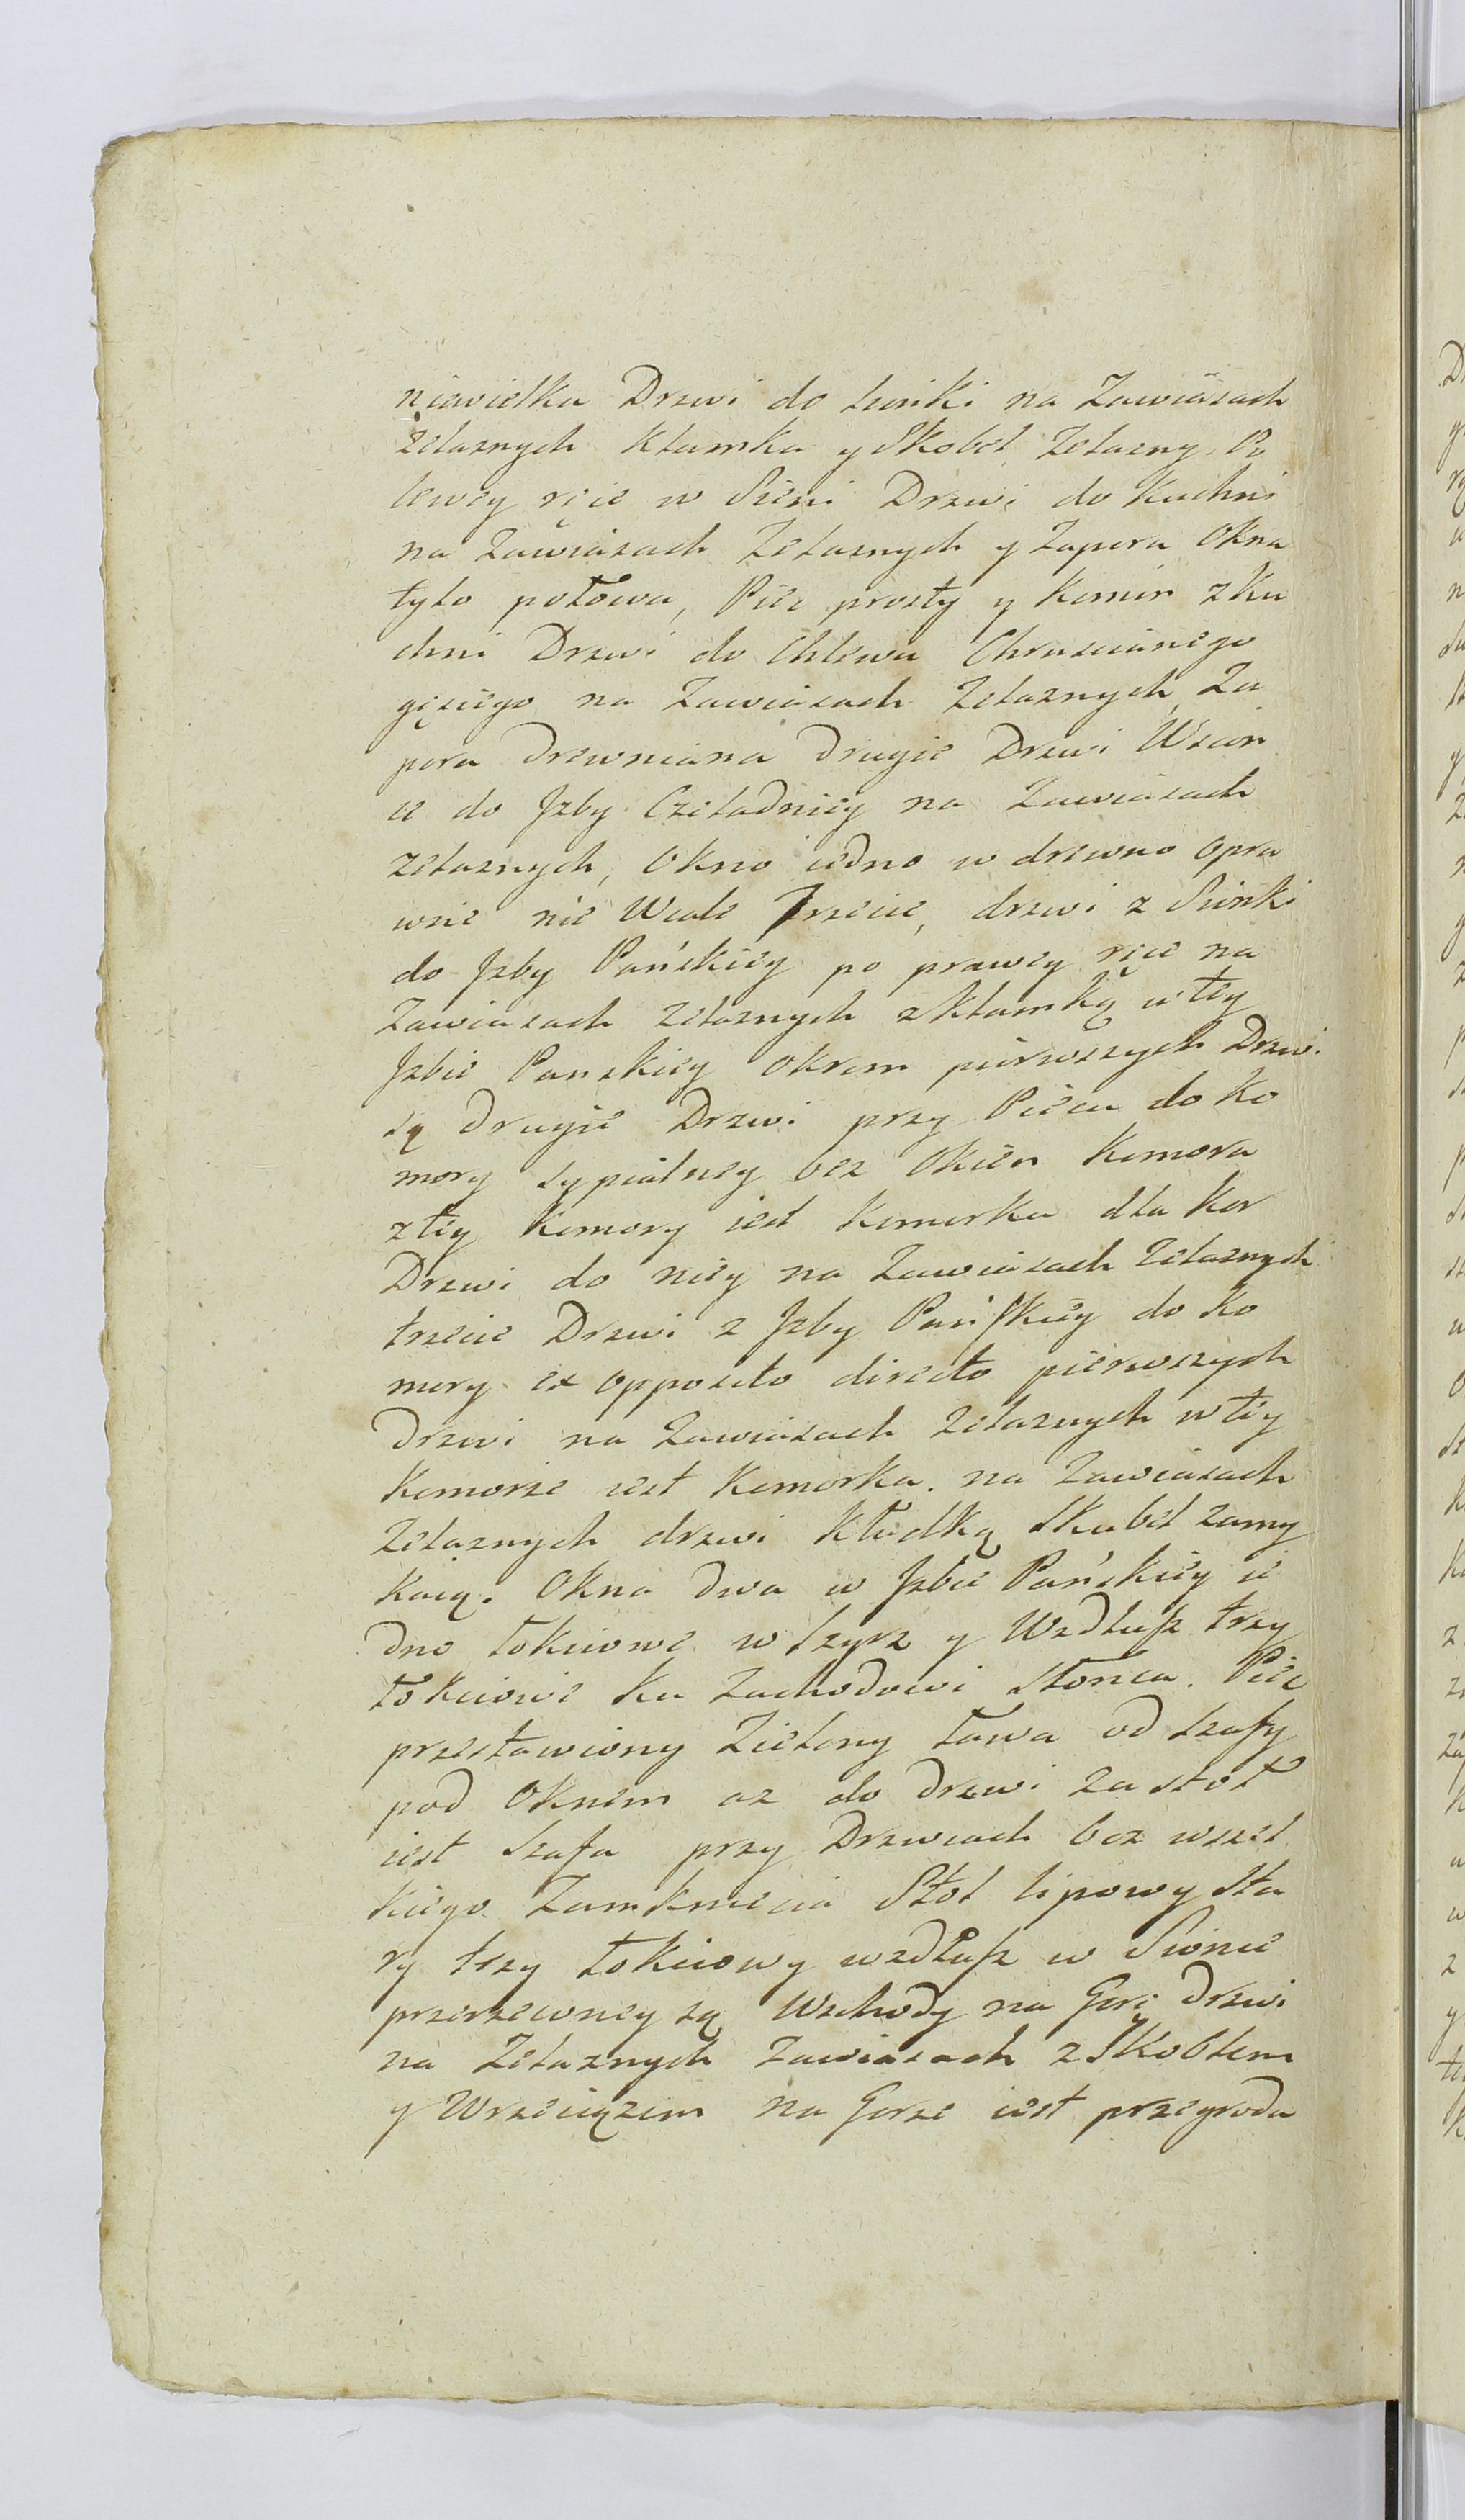 niewielka Drzwi do sionki na Zawiasach
żelaznych Klamka y Skobel Zelazny. Po
lewey ręce w Sieni Drzwi do Kuchni
na Zawiasach Zelaznych y Zapora Okna
tylo połowa, Piec prosty y Komin z Ku
chni Drzwi do Chlewa Chruscianego
gęsiego na Zawiasach Zelaznych Za
pora drewniana drugie Drzwi
do Jzby Czeladniey na Zawiasach
zelaznych, Okno iedno w drzewno opra
wne nie Wcale Trzecie, drzwi z Sionki
do Jzby Pańskiey po prawey ręce na
Zawiasach zelaznych z Klamką w tey
Jzbie Panskiey Okrom pierwszych Drzwi
są drugie Drzwi przy Piecu do Ko
mory sypialney bez Okien Komora
z tey Komory iest Komorka dla Kor
Drzwi do niey na Zawiasach Zelaznych
trzecie Drzwi z Jzby Pańskiey do Ko
mory ex opposito directo pierwszych
drzwi na Zawiasach zelaznych w tey
Komorze iest Komorka. na Zawiasach
Zelaznych drzwi Kłudką Skubel zamy
Kaią. Okna dwa w Jzbie Pańskiey ie
dno łokciowe w szyrz y Wzdłuż trzy
łokciowe ku Zachodowi słonca. Piec
przestawiony Zielony ława od szafy
pod Oknem az do drzwi za stoł
iest szafa przy Drzwiach bez wszel
kiego Zamknięcia Stoł lipowy sta
ry trzy łokciowy wzdłuż w Sionce
przerzewney są Wschody na Gorę drzwi
na Zelaznych zawiasach z Skoblem
y Wrzeciązem na Gorze iest przegroda